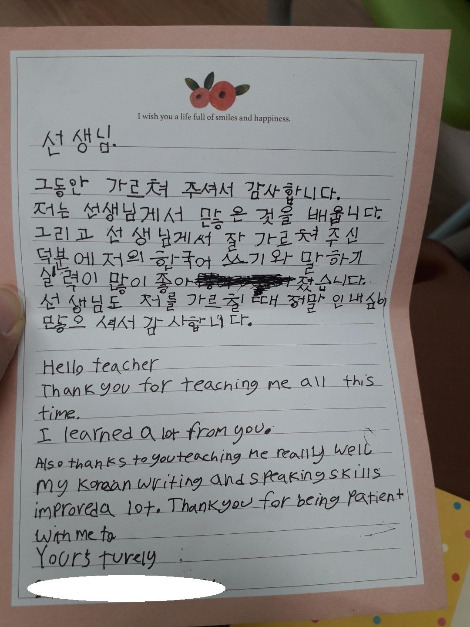 I wish you a life full of smiles and happiness.
선생님.
그동안 가르쳐 주셔서 감사합니다.
저는 선생님게서 많은 것을 배웁니다.
그리고 선생님게서 잘 가르쳐 주신
덕분에 저의 한국어 쓰기와 말하기
실력이 많이 좋아졌습니다.
선생님도 저를 가르칠 때 정말 인내심이
많으셔서 감사합니다.
Hello teacher
Thank you for teaching me all this
time.
I learned a lot from you.
Also thanks to you teaching me really well
my Korean writing and speaking skills
improved a lot. Thank you for being patient
with me to
Yours turely